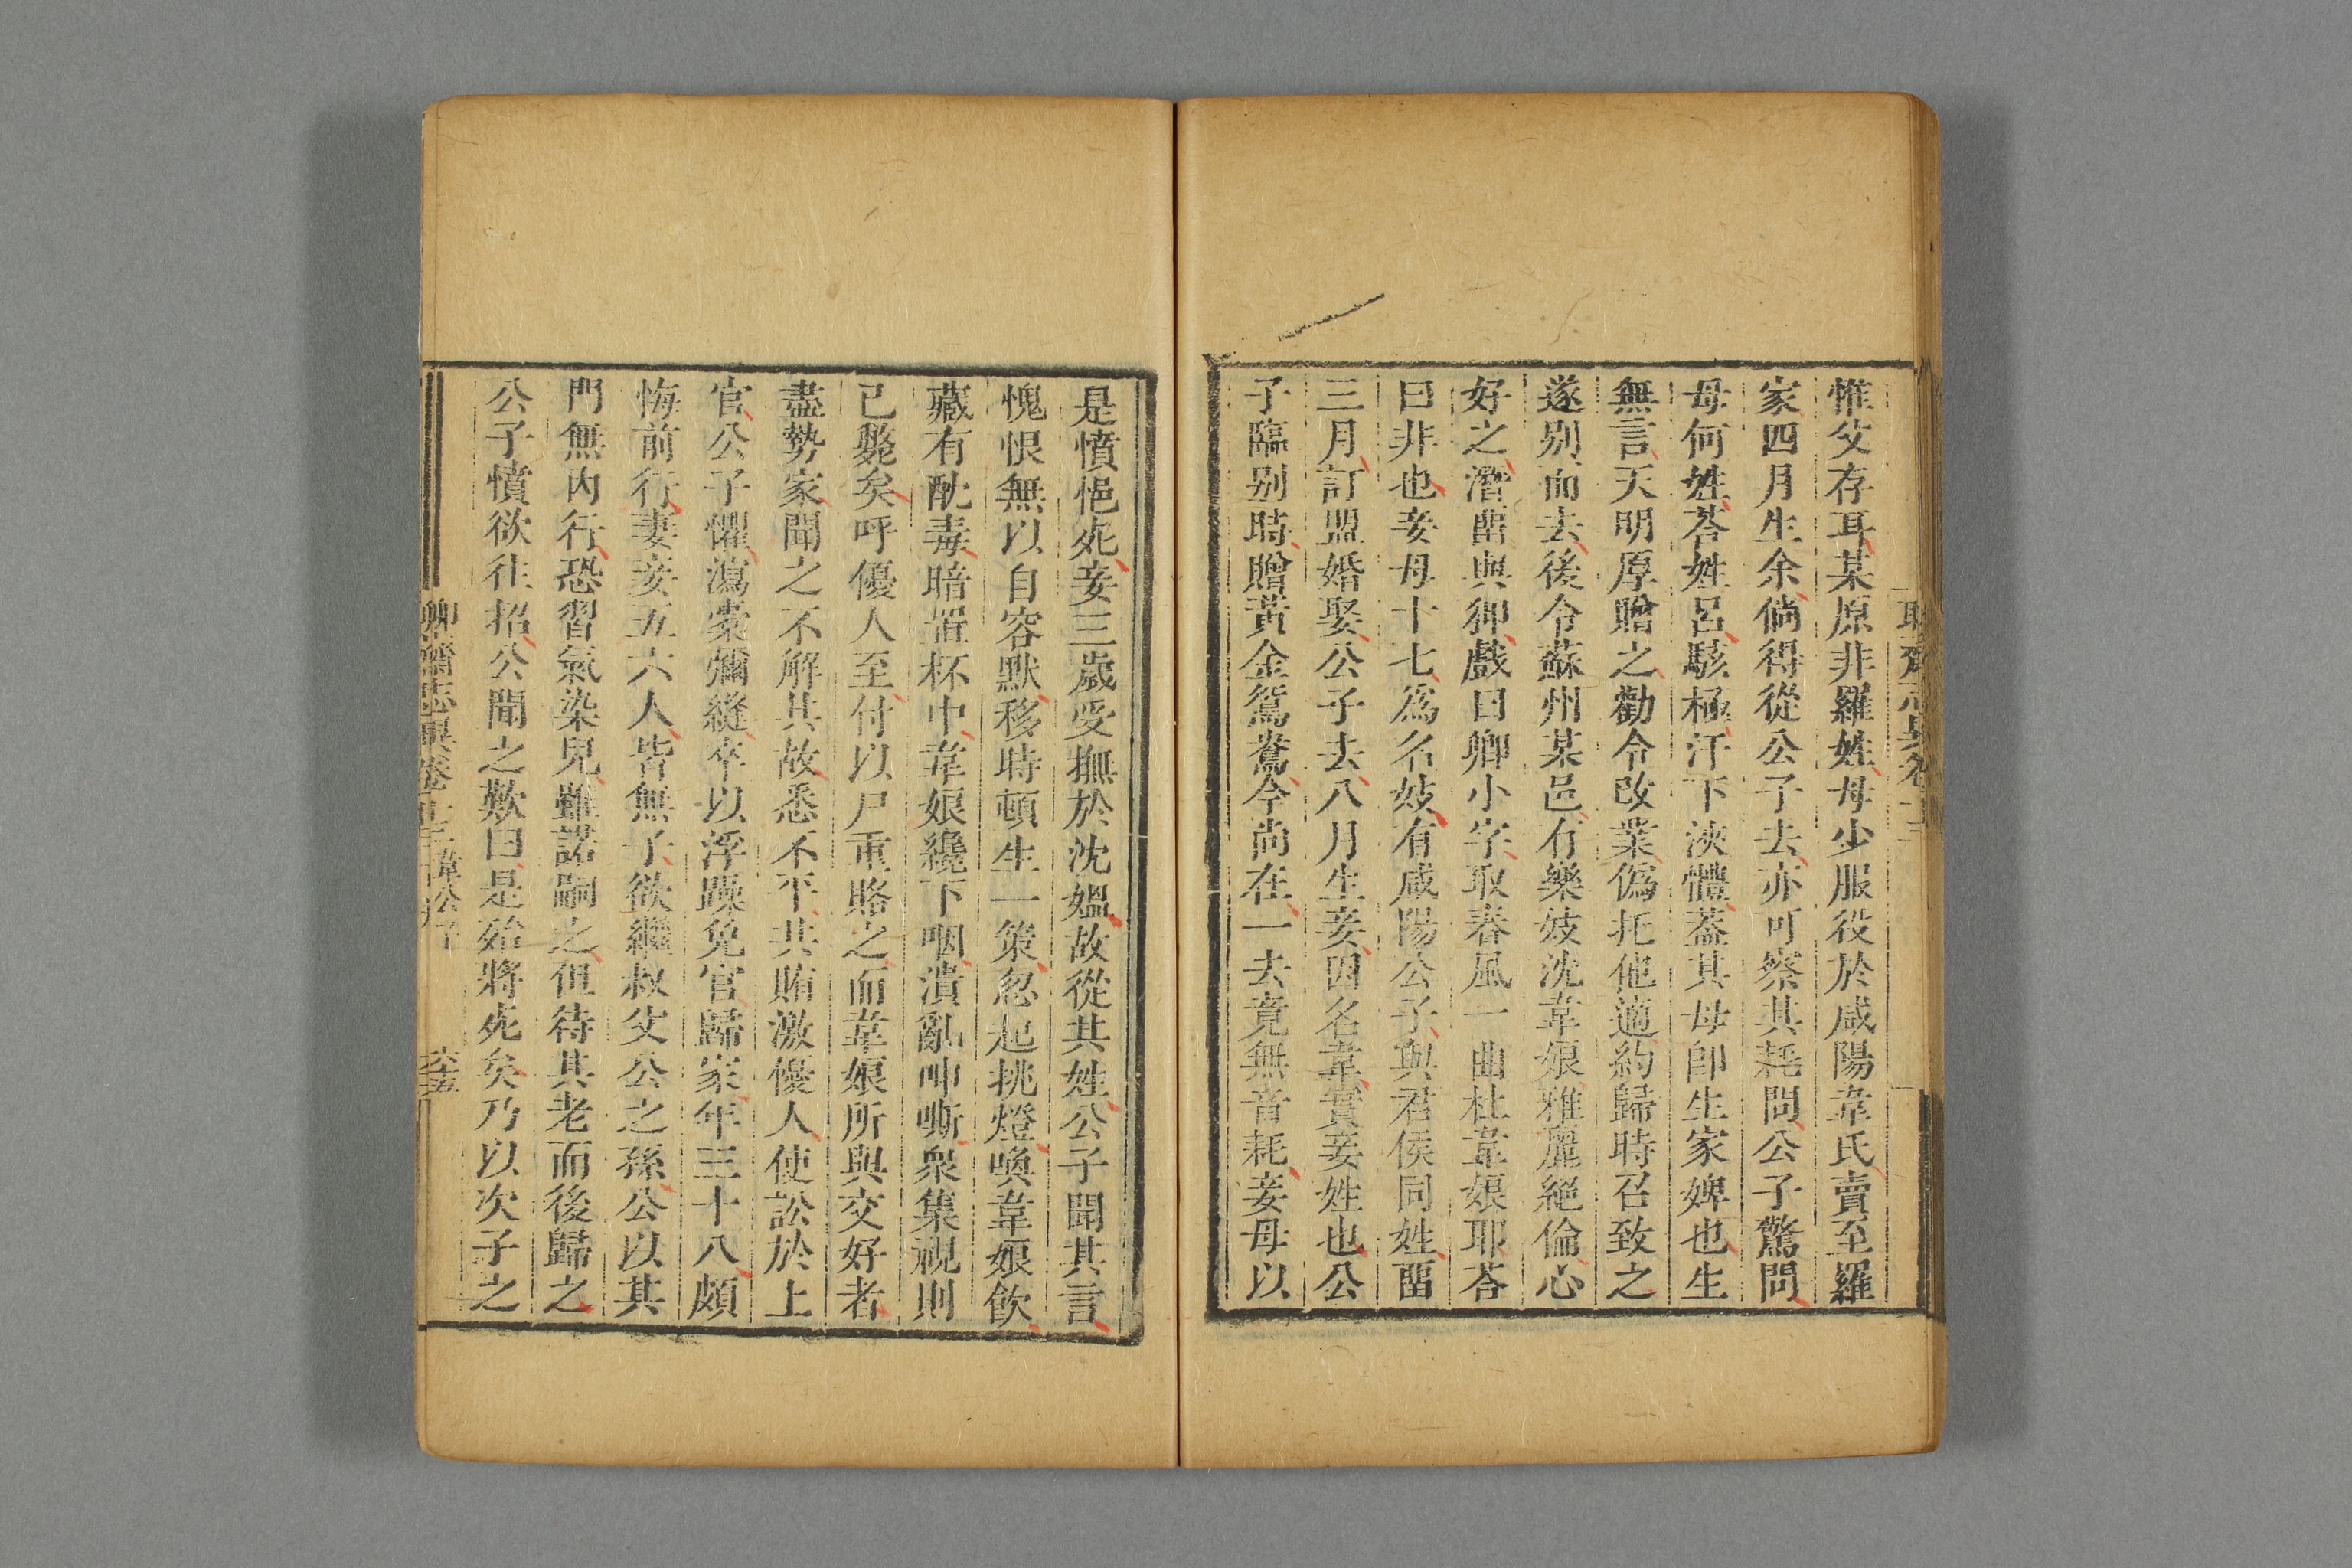 惟父存耳某原非羅姓母少服役於咸陽韋氏賣至羅
家四月生余倘得從公子去亦可察其耗問公子驚問
母何姓荅姓呂駭極汗下浹體葢其母卽生家婢也生
無言天明厚贈之勸令改業偽托他適約歸時召致之
遂别而去後令蘇州某邑有樂妓沈韋娘雅麗絕倫心
好之潛畱與狎戲曰卿小字取春風一曲杜韋娘耶荅
曰非也妾母十七爲名妓有咸陽公子與君侯同姓畱
三月訂盟婚娶公子去八月生妾因名韋實妾姓也公
子臨别時贈黃金鴛鴦今尚在一去竟無音耗妾母以
是憤悒死妾三歲受撫於沈媼故從其姓公子聞其言
愧恨無以自容默移時頓生一策忽起挑燈喚韋娘飲
藏有酖毒暗置杯中韋娘纔下咽潰亂呻嘶衆集視則
已斃矣呼優人至付以尸重賂之而韋娘所與交好者
盡勢家聞之不解其故悉不平共賄激優人使訟於上
官公子懼瀉橐彌縫卒以浮躁免官歸家年三十八頗
悔前行妻妾五六人皆無子欲繼叔父公之孫公以其
門無内行恐習氣染兒雖諾嗣之但待其老而後歸之
公子憤欲往招公聞之歎曰是殆將死矣乃以次子之
聊齋志異卷十三 韋公子 六十五